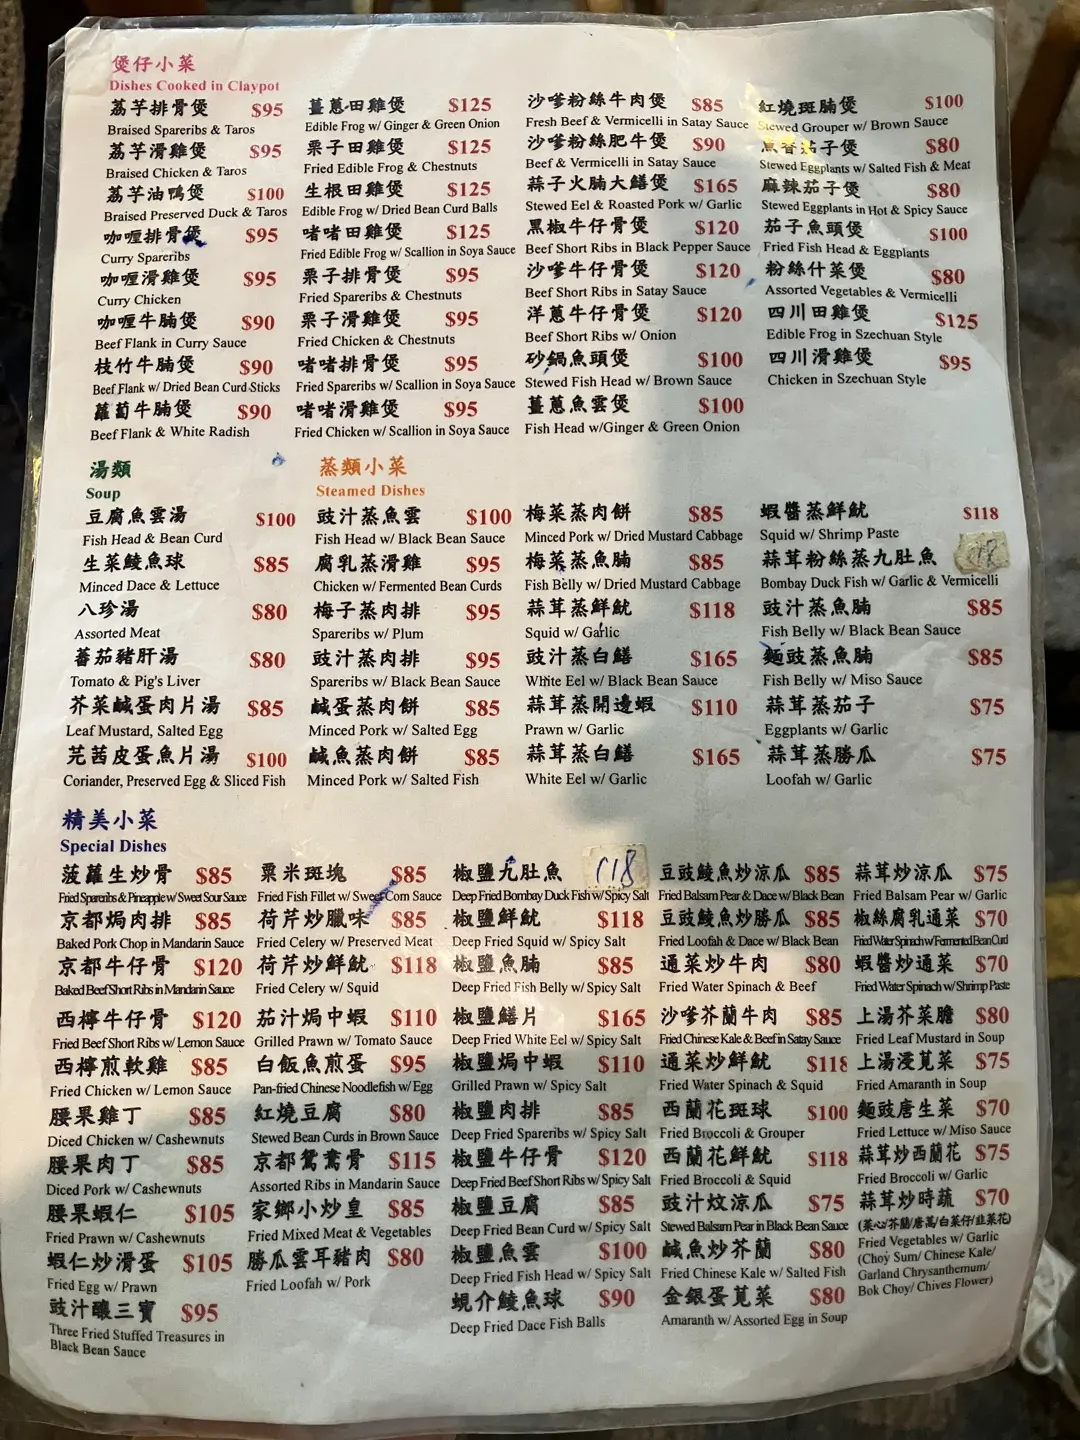 煲仔小菜
Dishes Cooked in Claypot
荔芋排骨煲 $95
Braised Spareribs & Taros
荔芋滑雞煲 $95
Braised Chicken & Taros
荔芋油鴨煲 $100
Braised Preserved Duck & Taros
咖喱排骨煲 $95
Curry Spareribs
咖喱滑雞煲 $95
Curry Chicken
咖喱牛腩煲 $90
Beef Flank in Curry Sauce
枝竹牛腩煲 $90
Beef Flank w/ Dried Bean Curd Sticks
蘿蔔牛腩煲 $90
Beef Flank & White Radish
薑蔥田雞煲 $125
Edible Frog w/ Ginger & Green Onion
栗子田雞煲 $125
Fried Edible Frog & Chestnuts
生根田雞煲 $125
Edible Frog w/ Dried Bean Curd Balls
啫啫田雞煲 $125
Fried Edible Frog w/ Scallion in Soya Sauce
栗子排骨煲 $95
Fried Spareribs & Chestnuts
栗子滑雞煲 $95
Fried Chicken & Chestnuts
啫啫排骨煲 $95
Fried Spareribs w/ Scallion in Soya Sauce
啫啫滑雞煲 $95
Fried Chicken w/ Scallion in Soya Sauce
沙嗲粉絲牛肉煲 $85
Fresh Beef & Vermicelli in Satay Sauce
沙嗲粉絲肥牛煲 $90
Beef & Vermicelli in Satay Sauce
蒜子火腩大鱔煲 $165
Stewed Eel & Roasted Pork w/ Garlic
黑椒牛仔骨煲 $120
Beef Short Ribs in Black Pepper Sauce
沙嗲牛仔骨煲 $120
Beef Short Ribs in Satay Sauce
洋蔥牛仔骨煲 $120
Beef Short Ribs w/ Onion
砂鍋魚頭煲 $100
Stewed Fish Head w/ Brown Sauce
薑蔥魚雲煲 $100
Fish Head w/Ginger & Green Onion
紅燒斑腩煲 $100
Stewed Grouper w/ Brown Sauce
魚香茄子煲 $80
Stewed Eggplants w/ Salted Fish & Meat
麻辣茄子煲 $80
Stewed Eggplants in Hot & Spicy Sauce
茄子魚頭煲 $100
Fried Fish Head & Eggplants
粉絲什菜煲 $80
Assorted Vegetables & Vermicelli
四川田雞煲 $125
Edible Frog in Szechuan Style
四川滑雞煲 $95
Chicken in Szechuan Style
湯類
Soup
豆腐魚雲湯 $100
Fish Head & Bean Curd
生菜鯪魚球 $85
Minced Dace & Lettuce
八珍湯 $80
Assorted Meat
蕃茄豬肝湯 $80
Tomato & Pig's Liver
芥菜鹹蛋肉片湯 $85
Leaf Mustard, Salted Egg
芫茜皮蛋魚片湯 $100
Coriander, Preserved Egg & Sliced Fish
蒸類小菜
Steamed Dishes
豉汁蒸魚雲 $100
Fish Head w/ Black Bean Sauce
腐乳蒸滑雞 $95
Chicken w/ Fermented Bean Curds
梅子蒸肉排 $95
Spareribs w/ Plum
豉汁蒸肉排 $95
Spareribs w/ Black Bean Sauce
鹹蛋蒸肉餅 $85
Minced Pork w/ Salted Egg
鹹魚蒸肉餅 $85
Minced Pork w/ Salted Fish
梅菜蒸肉餅 $85
Minced Pork w/ Dried Mustard Cabbage
梅菜蒸魚腩 $85
Fish Belly w/ Dried Mustard Cabbage
蒜茸蒸鮮魷 $118
Squid w/ Garlic
豉汁蒸白鱔 $165
White Eel w/ Black Bean Sauce
蒜茸蒸開邊蝦 $110
Prawn w/ Garlic
蒜茸蒸白鱔 $165
White Eel w/ Garlic
蝦醬蒸鮮魷 $118
Squid w/ Shrimp Paste
蒜茸粉絲蒸九肚魚
Bombay Duck Fish w/ Garlic & Vermicelli
豉汁蒸魚腩 $85
Fish Belly w/ Black Bean Sauce
麵豉蒸魚腩 $85
Fish Belly w/ Miso Sauce
蒜茸蒸茄子 $75
Eggplants w/ Garlic
蒜茸蒸勝瓜 $75
Loofah w/ Garlic
精美小菜
Special Dishes
菠蘿生炒骨 $85
Fried Spareribs & Pineapple w/ Sweet Sour Sauce
京都焗肉排 $85
Baked Pork Chop in Mandarin Sauce
京都牛仔骨 $120
Baked Beef Short Ribs in Mandarin Sauce
西檸牛仔骨 $120
Fried Beef Short Ribs w/ Lemon Sauce
西檸煎軟雞 $85
Fried Chicken w/ Lemon Sauce
腰果雞丁 $85
Diced Chicken w/ Cashewnuts
腰果肉丁 $85
Diced Pork w/ Cashewnuts
腰果蝦仁 $105
Fried Prawn w/ Cashewnuts
蝦仁炒滑蛋 $105
Fried Egg w/ Prawn
豉汁釀三寶 $95
Three Fried Stuffed Treasures in
Black Bean Sauce
粟米斑塊 $85
Fried Fish Fillet w/ Sweet Corn Sauce
荷芹炒臘味 $85
Fried Celery w/ Preserved Meat
荷芹炒鮮魷 $118
Fried Celery w/ Squid
茄汁焗中蝦 $110
Grilled Prawn w/ Tomato Sauce
白飯魚煎蛋 $95
Pan-fried Chinese Noodlefish w/ Egg
紅燒豆腐 $80
Stewed Bean Curds in Brown Sauce
京都鴛鴦骨 $115
Assorted Ribs in Mandarin Sauce
家鄉小炒皇 $85
Fried Mixed Meat & Vegetables
勝瓜雲耳豬肉 $80
Fried Loofah w/ Pork
椒鹽九肚魚 118
Deep Fried Bombay Duck Fish w/ Spicy Salt
椒鹽鮮魷 $118
Deep Fried Squid w/ Spicy Salt
椒鹽魚腩 $85
Deep Fried Fish Belly w/ Spicy Salt
椒鹽鱔片 $165
Deep Fried White Eel w/ Spicy Salt
椒鹽焗中蝦 $110
Grilled Prawn w/ Spicy Salt
椒鹽肉排 $85
Deep Fried Spareribs w/ Spicy Salt
椒鹽牛仔骨 $120
Deep Fried Beef Short Ribs w/ Spicy Salt
椒鹽豆腐 $85
Deep Fried Bean Curd w/ Spicy Salt
椒鹽魚雲 $100
Deep Fried Fish Head w/ Spicy Salt
蜆介鯪魚球 $90
Deep Fried Dace Fish Balls
豆豉鯪魚炒涼瓜 $85
Fried Balsam Pear & Dace w/ Black Bean
豆豉鯪魚炒勝瓜 $85
Fried Loofah & Dace w/ Black Bean
通菜炒牛肉 $80
Fried Water Spinach & Beef
沙嗲芥蘭牛肉 $85
Fried Chinese Kale & Beef in Satay Sauce
通菜炒鮮魷 $118
Fried Water Spinach & Squid
西蘭花斑球 $100
Fried Broccoli & Grouper
西蘭花鮮魷 $118
Fried Broccoli & Squid
豉汁炆涼瓜 $75
Stewed Balsam Pear in Black Bean Sauce
鹹魚炒芥蘭 $80
Fried Chinese Kale w/ Salted Fish
金銀蛋莧菜 $80
Amaranth w/ Assorted Egg in Soup
蒜茸炒涼瓜 $75
Fried Balsam Pear w/ Garlic
椒絲腐乳通菜 $70
Fried Water Spinach w/ Fermented Bean Curd
蝦醬炒通菜 $70
Fried Water Spinach w/ Shrimp Paste
上湯芥菜膽 $80
Fried Leaf Mustard in Soup
上湯浸莧菜 $75
Fried Amaranth in Soup
麵豉唐生菜 $70
Fried Lettuce w/ Miso Sauce
蒜茸炒西蘭花 $75
Fried Broccoli w/ Garlic
蒜茸炒時蔬 $70
(菜心/芥蘭/唐蒿/白菜仔/韭菜花)
Fried Vegetables w/ Garlic
(Choy Sum/ Chinese Kale/
Garland Chrysanthemum/
Bok Choy/ Chives Flower)